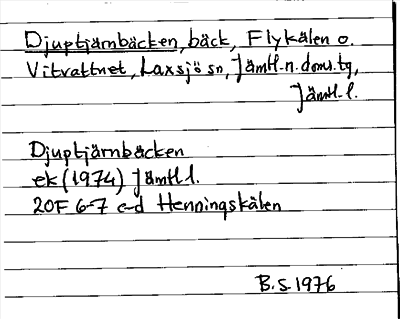 Djuptjärnbäcken, bäck, Flykälen o.
Vitvattnet, Laxsjö sn, Jämtl. n. doms. tg,
Jämtl. l.
Djuptjärnbäcken
ek (1974) Jämtl l.
20F 6-7 c-d Henningskälen
B.S. 1976